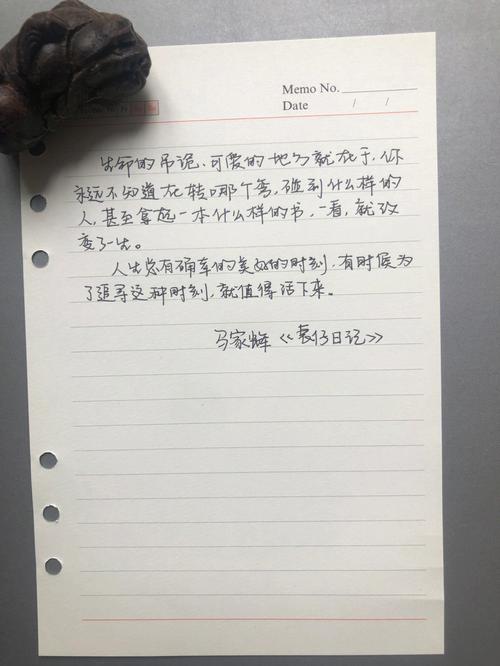 Memo No.
Date / /
生命的吊诡、可爱的地方就在于,你
永远不知道在转哪个弯,碰到什么样的
人,甚至拿起一本什么样的书,一看,就改
变了一生。
人生总有确幸的美好的时刻,有时候为
了追寻这种时刻,就值得活下来。
马家辉《表仔日记》